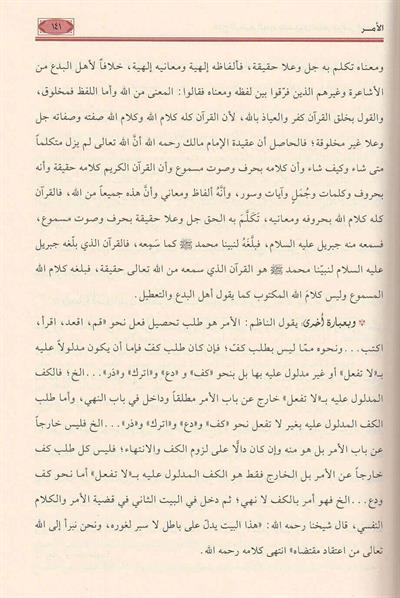 الأمـر
١٤١
ومعناه تكلم به جل وعلا حقيقة، فألفاظه إلهية ومعانيه إلهية، خلافاً لأهل البدع من
الأشاعرة وغيرهم الذين فرّقوا بين لفظه ومعناه فقالوا: المعنى من الله وأما اللفظ فمخلوق،
والقول بخلق القرآن كفر والعياذ بالله، لأن القرآن كله كلام الله وكلام الله صفته وصفاته جل
وعلا غير مخلوقة؛ فالحاصل أن عقيدة الإمام مالك رحمه الله أنَّ الله تعالى لم يزل متكلماً
متى شاء وكيف شاء وأن كلامه بحرف وصوت مسموع وأن القرآن الكريم كلامه حقيقة وأنه
بحروف وكلمات وجُمَلٍ وآيات وسور، وأنَّهُ ألفاظ ومعاني وأنَّ هذه جميعاً من الله، فالقرآن
كله كلام الله بحروفه ومعانيه، تَكَلَّمَ به الحق جل وعلا حقيقة بحرف وصوت مسموع،
فسمعه منه جبريل عليه السلام، فبلَّغَهُ لنبينا محمد ﷺ كما سَمِعه، فالقرآن الذي بلّغه جبريل
عليه السلام لنبيّنا محمد ﷺ هو القرآن الذي سمعه من الله تعالى حقيقة، فبلغه كلام الله
المسموع وليس كلامَ الله المكتوب كما يقول أهل البدع والتعطيل.
وبعبارة أُخرى: يقول الناظم: الأمر هو طلب تحصيل فعل نحو «قم، اقعد، اقرأ،
اكتب...ونحوه ممّا ليس بطلب كفّ؛ فإن كان طلب كفّ فإما أن يكون مدلولاً عليه
بـ«لا تفعل» أو غير مدلول عليه بها بل بنحو «كف» و «دع» و«اترك» و«ذر»...الخ؛ فالكف
المدلول عليه بـ«لا تفعل» خارج عن باب الأمر مطلقاً وداخل في باب النهي، وأما طلب
الكف المدلول عليه بغير لا تفعل نحو «كف» و «دع» و«اترك» و«ذر»...الخ فليس خارجاً
عن باب الأمر بل هو منه وإن كان دالًّا على لزوم الكف والانتهاء؛ فليس كل طلب كف
خارجاً عن الأمر بل الخارج فقط هو الكف المدلول عليه بـ«لا تفعل» أما نحو كف
ودع...الخ فهو أمر بالكف لا نهي؛ ثم دخل في البيت الثاني في قضية الأمر والكلام
النفسي، قال شيخنا رحمه الله: «هذا البيت يدلّ على باطل لا سبر لغوره، ونحن نبرأ إلى الله
تعالى من اعتقاد مقتضاه» انتهى كلامه رحمه الله.